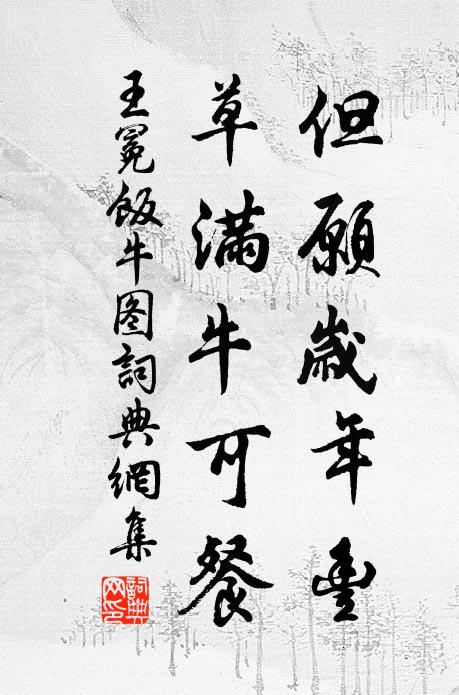 但願歲年豐
草滿牛可餐
王冕飯牛图詞典網集
詞典网印